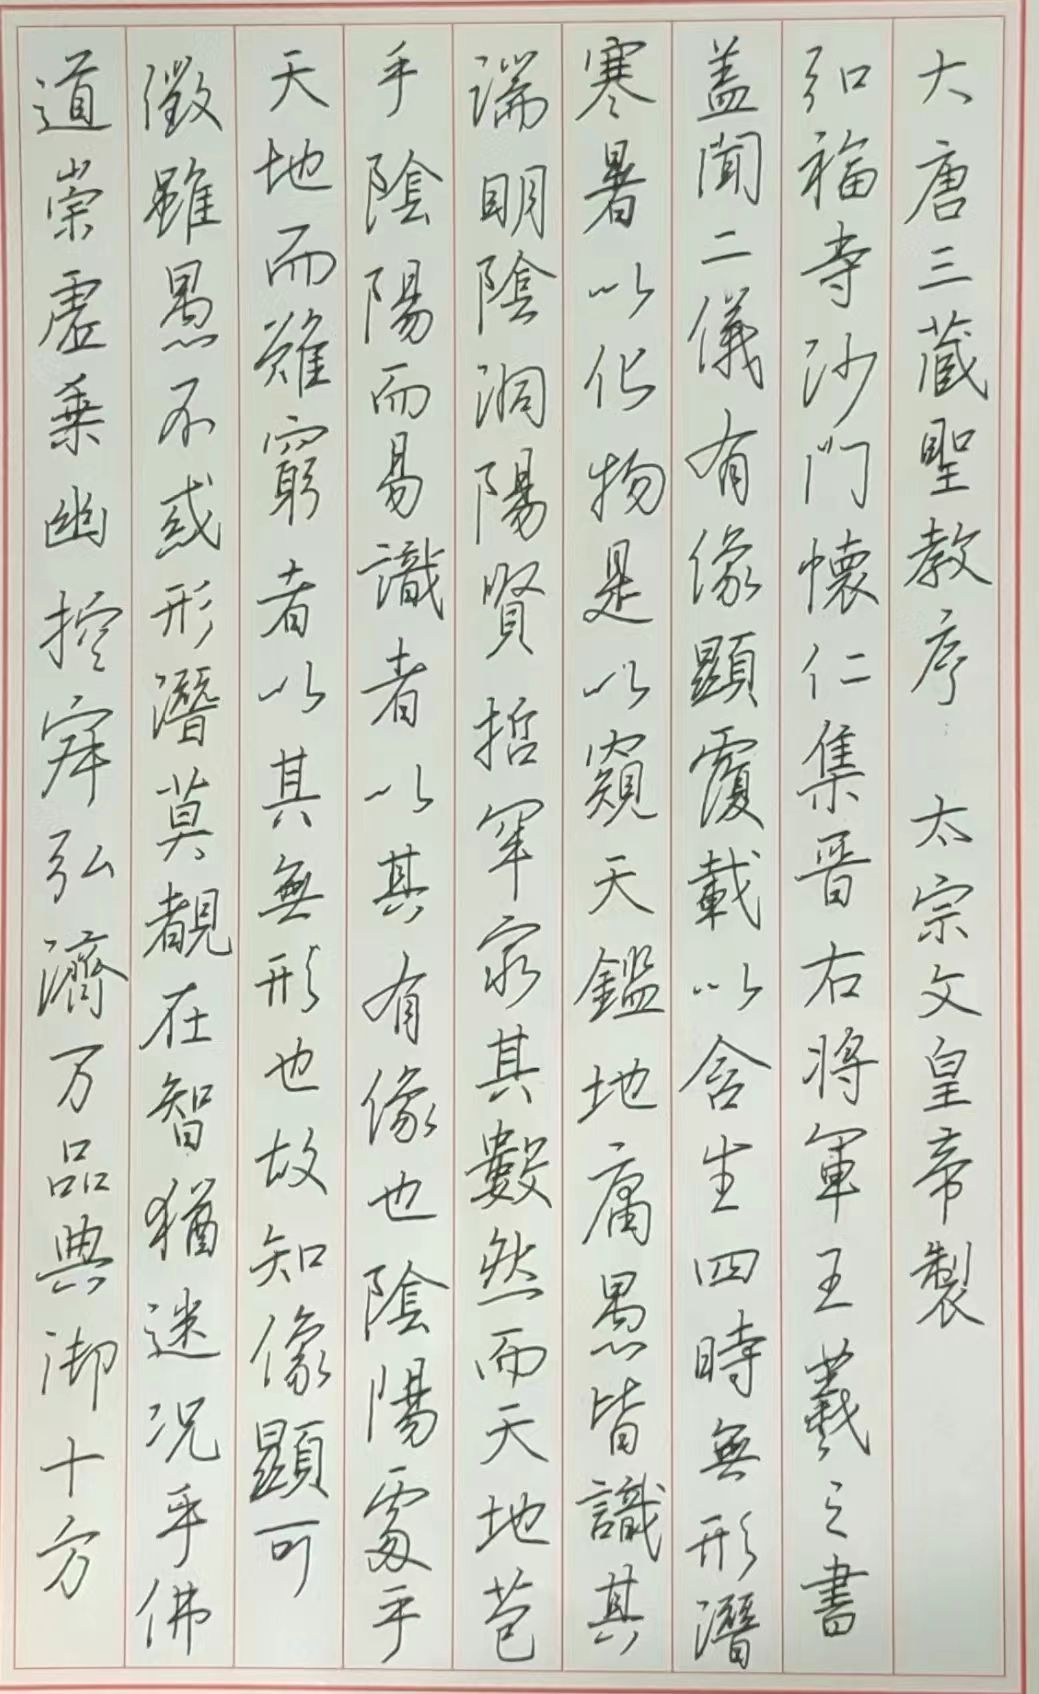 大唐三藏聖教序 太宗文皇帝製
弘福寺沙門懷仁集晉右將軍王羲之書
蓋聞二儀有像顯覆載以含生四時無形潛
寒暑以化物是以窺天鑑地庸愚皆識其
端明陰洞陽賢哲罕窮其數然而天地苞
乎陰陽而易識者以其有像也陰陽處乎
天地而難窮者以其無形也故知像顯可
徵雖愚不惑形潛莫覩在智猶迷況乎佛
道崇虛乘幽控寂弘濟万品典御十方